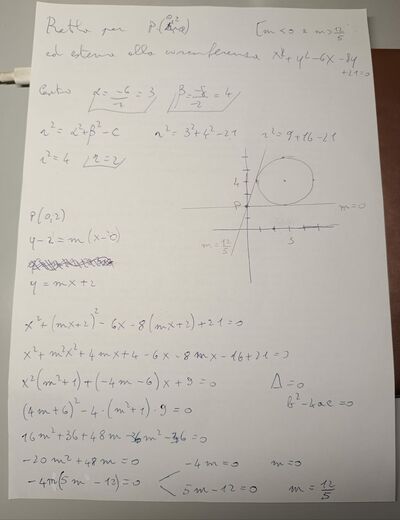 Retta per P(0,2) [m<0 e m>12/5
ed esterna alla circonferenza x²+y²-6x-8y
+21=0
Centro α=-6/-2=3 β=-8/-2=4
r²=α²+β²-c r²=3²+4²-21 r²=9+16-21
r²=4 r=2
4
P
m=0
m=12/5
5
P(0,2)
y-2=m(x-0)
y=mx+2
x²+(mx+2)²-6x-8(mx+2)+21=0
x²+m²x²+4mx+4-6x-8mx-16+21=0
x²(m²+1)+(-4m-6)x+9=0 Δ=0
(4m+6)²-4·(m²+1)·9=0 b²-4ac=0
16m²+36+48m-36m²-36=0
-20m²+48m=0 -4m=0 m=0
-4m(5m-12)=0 5m-12=0 m=12/5